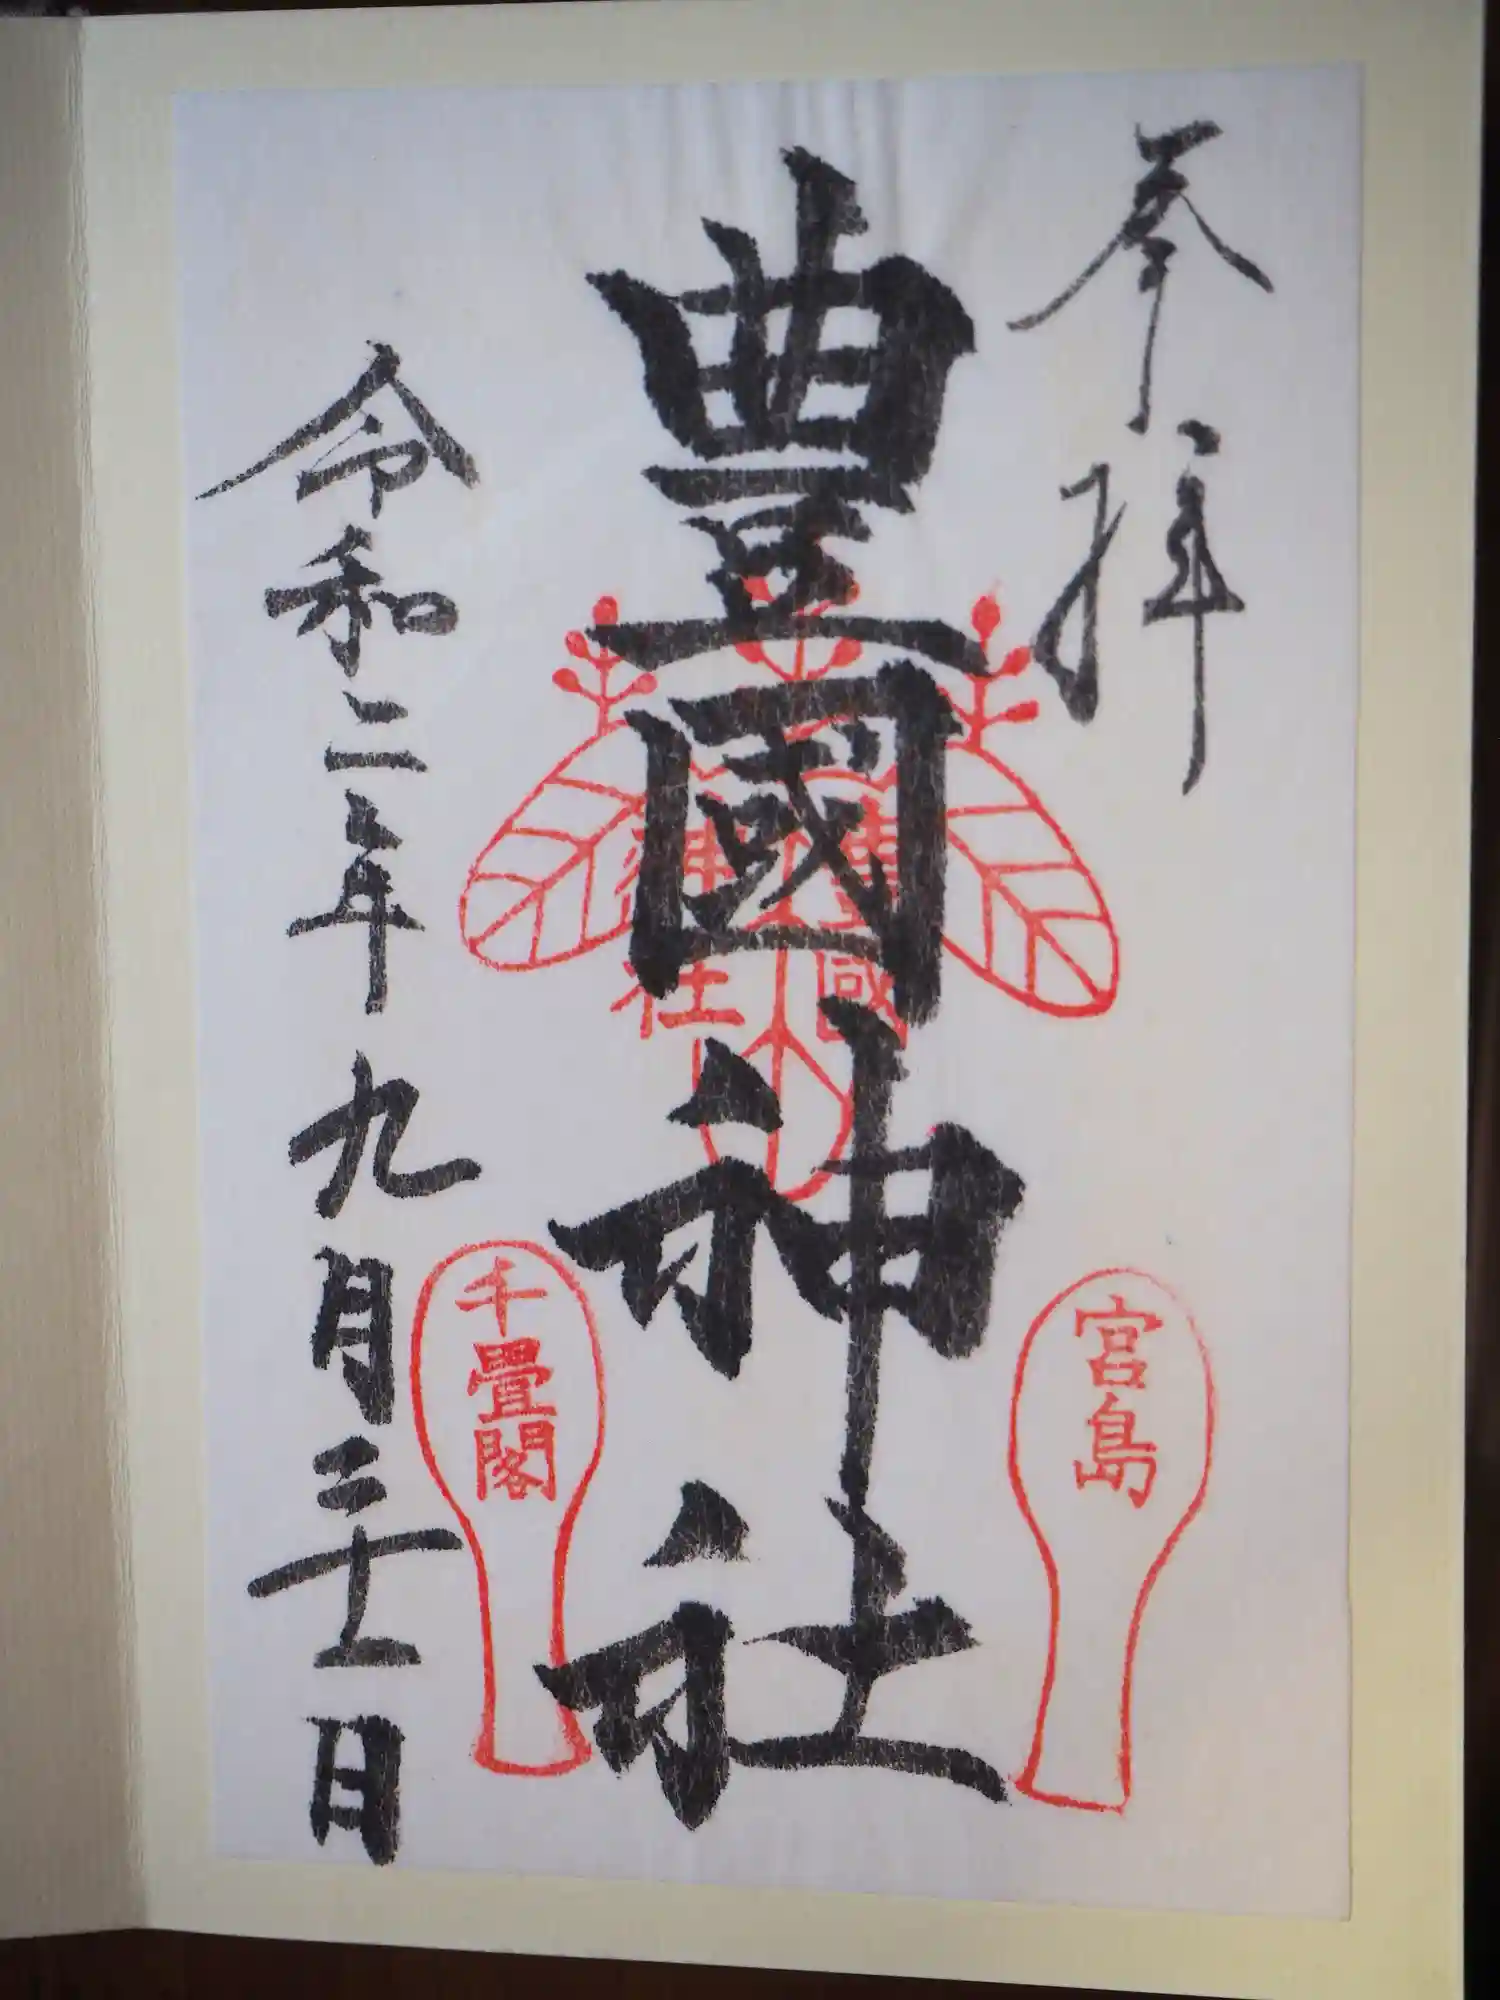 奉拝
宮島
豊國神社
豊國
神社
千畳閣
令和二年九月二十一日